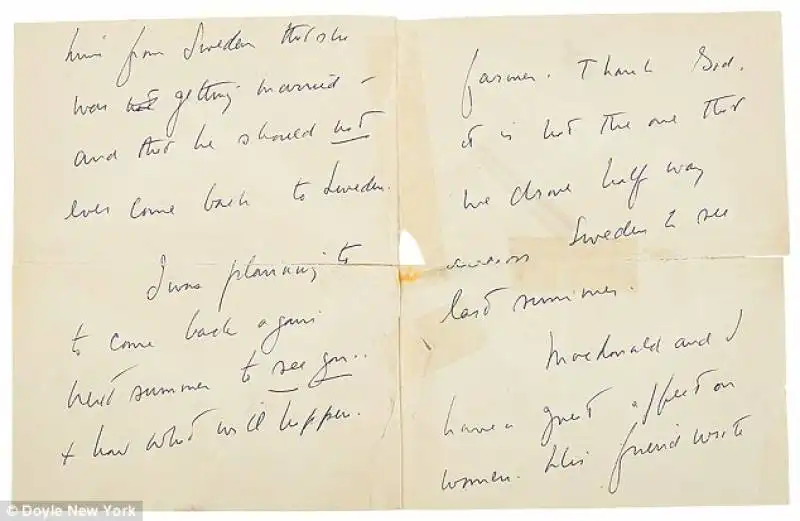 farmer. Thank God.
it is not the one that
we drove half way
across Sweden to see
last summer.
Macdonald and I
have a great affect on
women. His friend wrote
him from Sweden that she
was not getting married -
and that he should not
ever come back to Sweden.
I was planning to
to come back again
next summer to see you..
+ now what will happen.
© Doyle New York